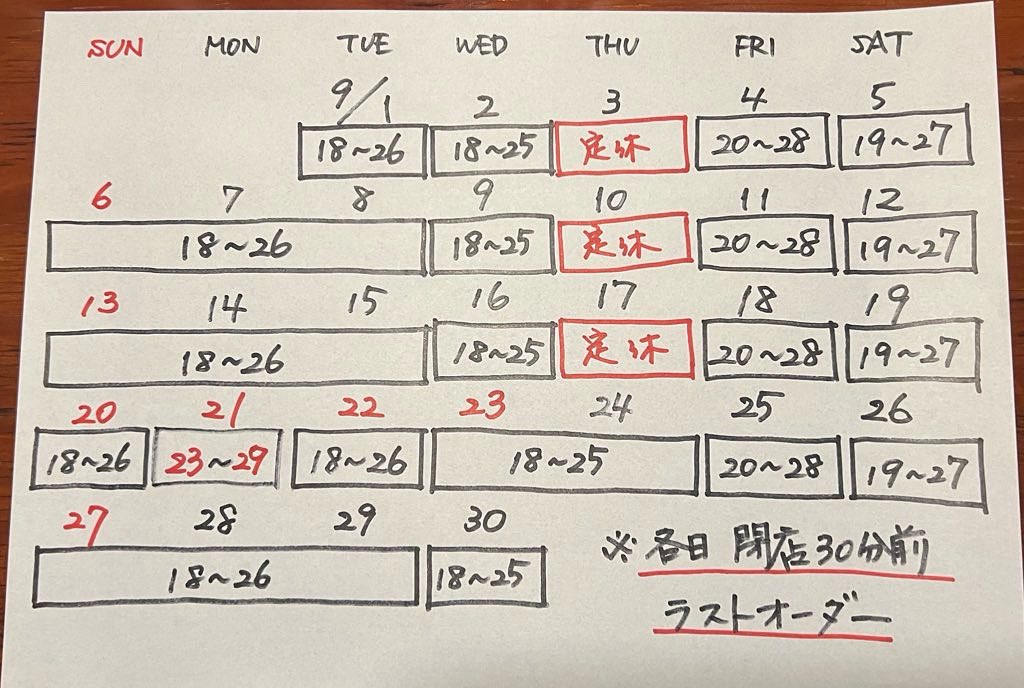 SUN MON TUE WED THU FRI SAT
9/1 2 3 4 5
18~26 18~25 定休 20~28 19~27
6 7 8 9 10 11 12
18~26 18~25 定休 20~28 19~27
13 14 15 16 17 18 19
18~26 18~25 定休 20~28 19~27
20 21 22 23 24 25 26
18~26 23~29 18~26 18~25 20~28 19~27
27 28 29 30
18~26 18~25
※各日 閉店30分前
ラストオーダー